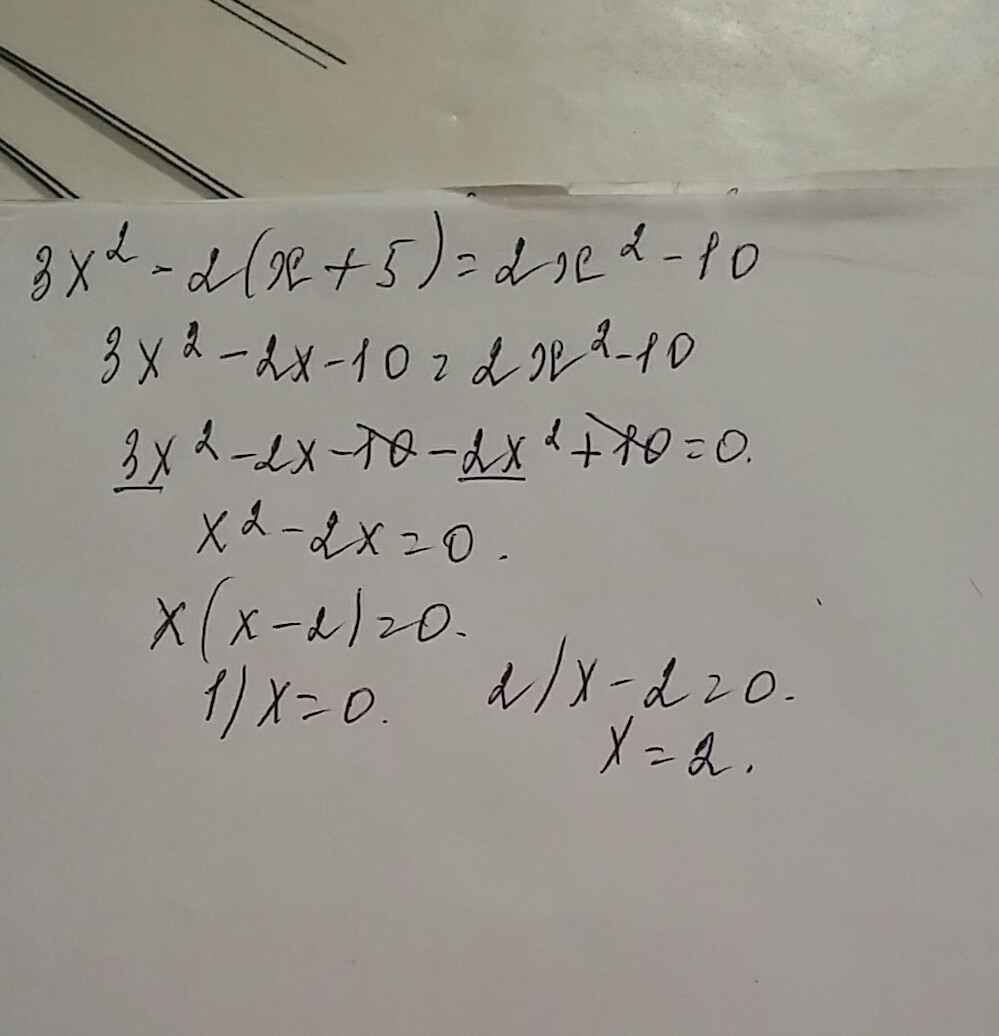 3x² - 2(x + 5) = 2x² - 10
3x² - 2x - 10 = 2x² - 10
3x² - 2x - 10 - 2x² + 10 = 0.
x² - 2x = 0.
x(x - 2) = 0.
1) x = 0. 2) x - 2 = 0.
x = 2.